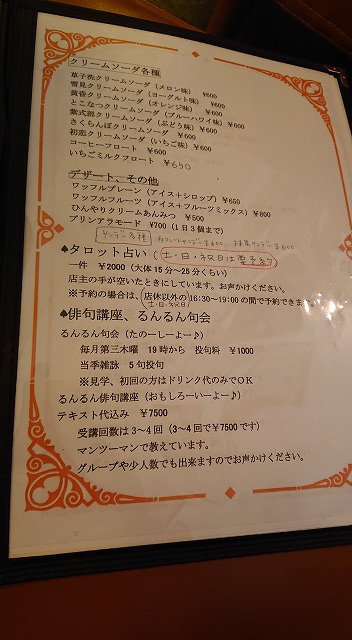 クリームソーダ各種
草子洗クリームソーダ（メロン味） ¥600
雪見クリームソーダ（ヨーグルト味） ¥600
黄昏クリームソーダ（オレンジ味） ¥600
とこなつクリームソーダ（ブルーハワイ味） ¥600
紫式部クリームソーダ（ぶどう味） ¥600
さくらんぼクリームソーダ ¥600
初恋クリームソーダ（いちご味）¥600
コーヒーフロート ¥600
いちごミルクフロート ¥650
デザート、その他
ワッフルプレーン（アイス＋シロップ）¥650
ワッフルフルーツ（アイス＋フルーツミックス）¥800
ひんやりクリームあんみつ ¥500
プリンアラモード ¥700（1日3個まで）
サンデー各種 ¥600 抹茶サンデー¥600
♠タロット占い（土・日・祝日は要予約）
一件 ¥2000（大体15分〜25分くらい）
店主の手が空いたときにしています。お声かけください。
※予約の場合は、店休以外の16:30〜19:00の間で予約できます
土・日・祝日
♠俳句講座、るんるん句会
るんるん句会（たのーしーよー♪）
毎月第三木曜 19時から 投句料 ¥1000
当季雑詠 5句投句
※見学、初回の方はドリンク代のみでOK
るんるん俳句講座（おもしろーいーよー♪）
テキスト代込み ¥7500
受講回数は3〜4回（3〜4回で¥7500です）
マンツーマンで教えています。
グループや少人数でも出来ますのでお声かけください。